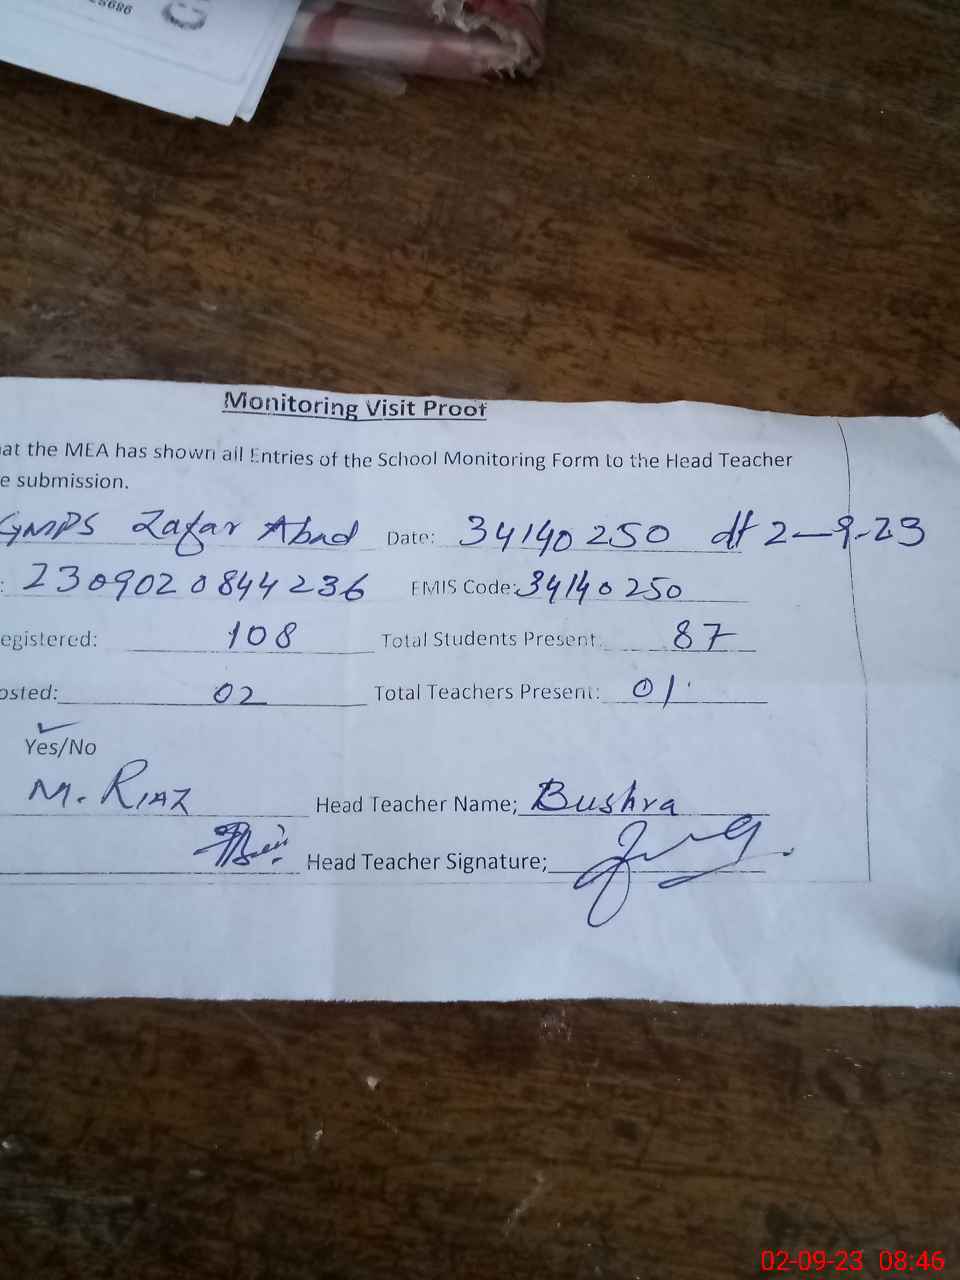 5686
Monitoring Visit Proof
at the MEA has shown all Entries of the School Monitoring Form to the Head Teacher
e submission.
GMPS Zafar Abad Date: 34140250 dt 2-9-23
: 230902 0844236 EMIS Code: 34140250
egistered: 108 Total Students Present: 87
osted: 02 Total Teachers Present: 01
Yes/No
M. RIAZ Head Teacher Name; Bushra
Head Teacher Signature;
02-09-23 08:46